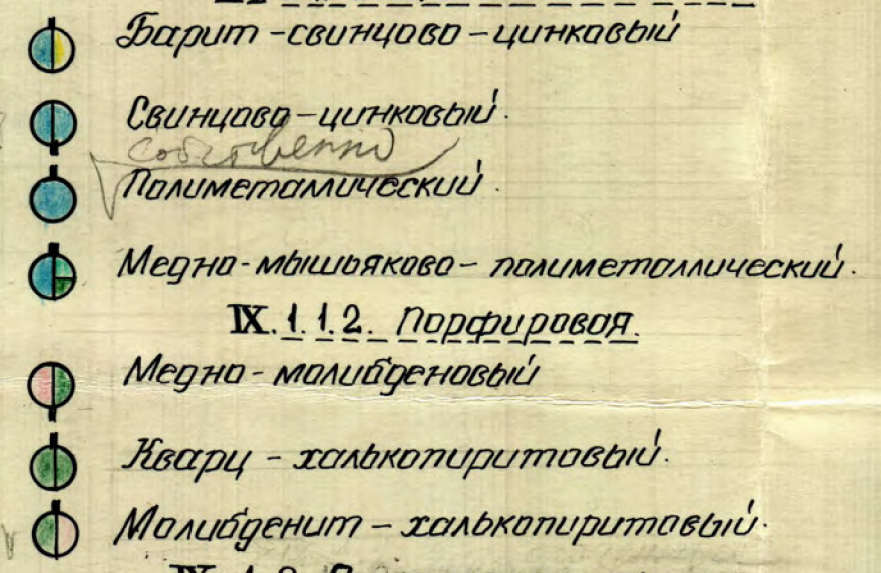 Барит-свинцово-цинковый
Свинцово-цинковый.
собственно
Полиметаллический.
Медно-мышьяково-полиметаллический.
IX.1.1.2. Порфировая.
Медно-молибденовый
Кварц-халькопиритовый.
Молибденит-халькопиритовый.